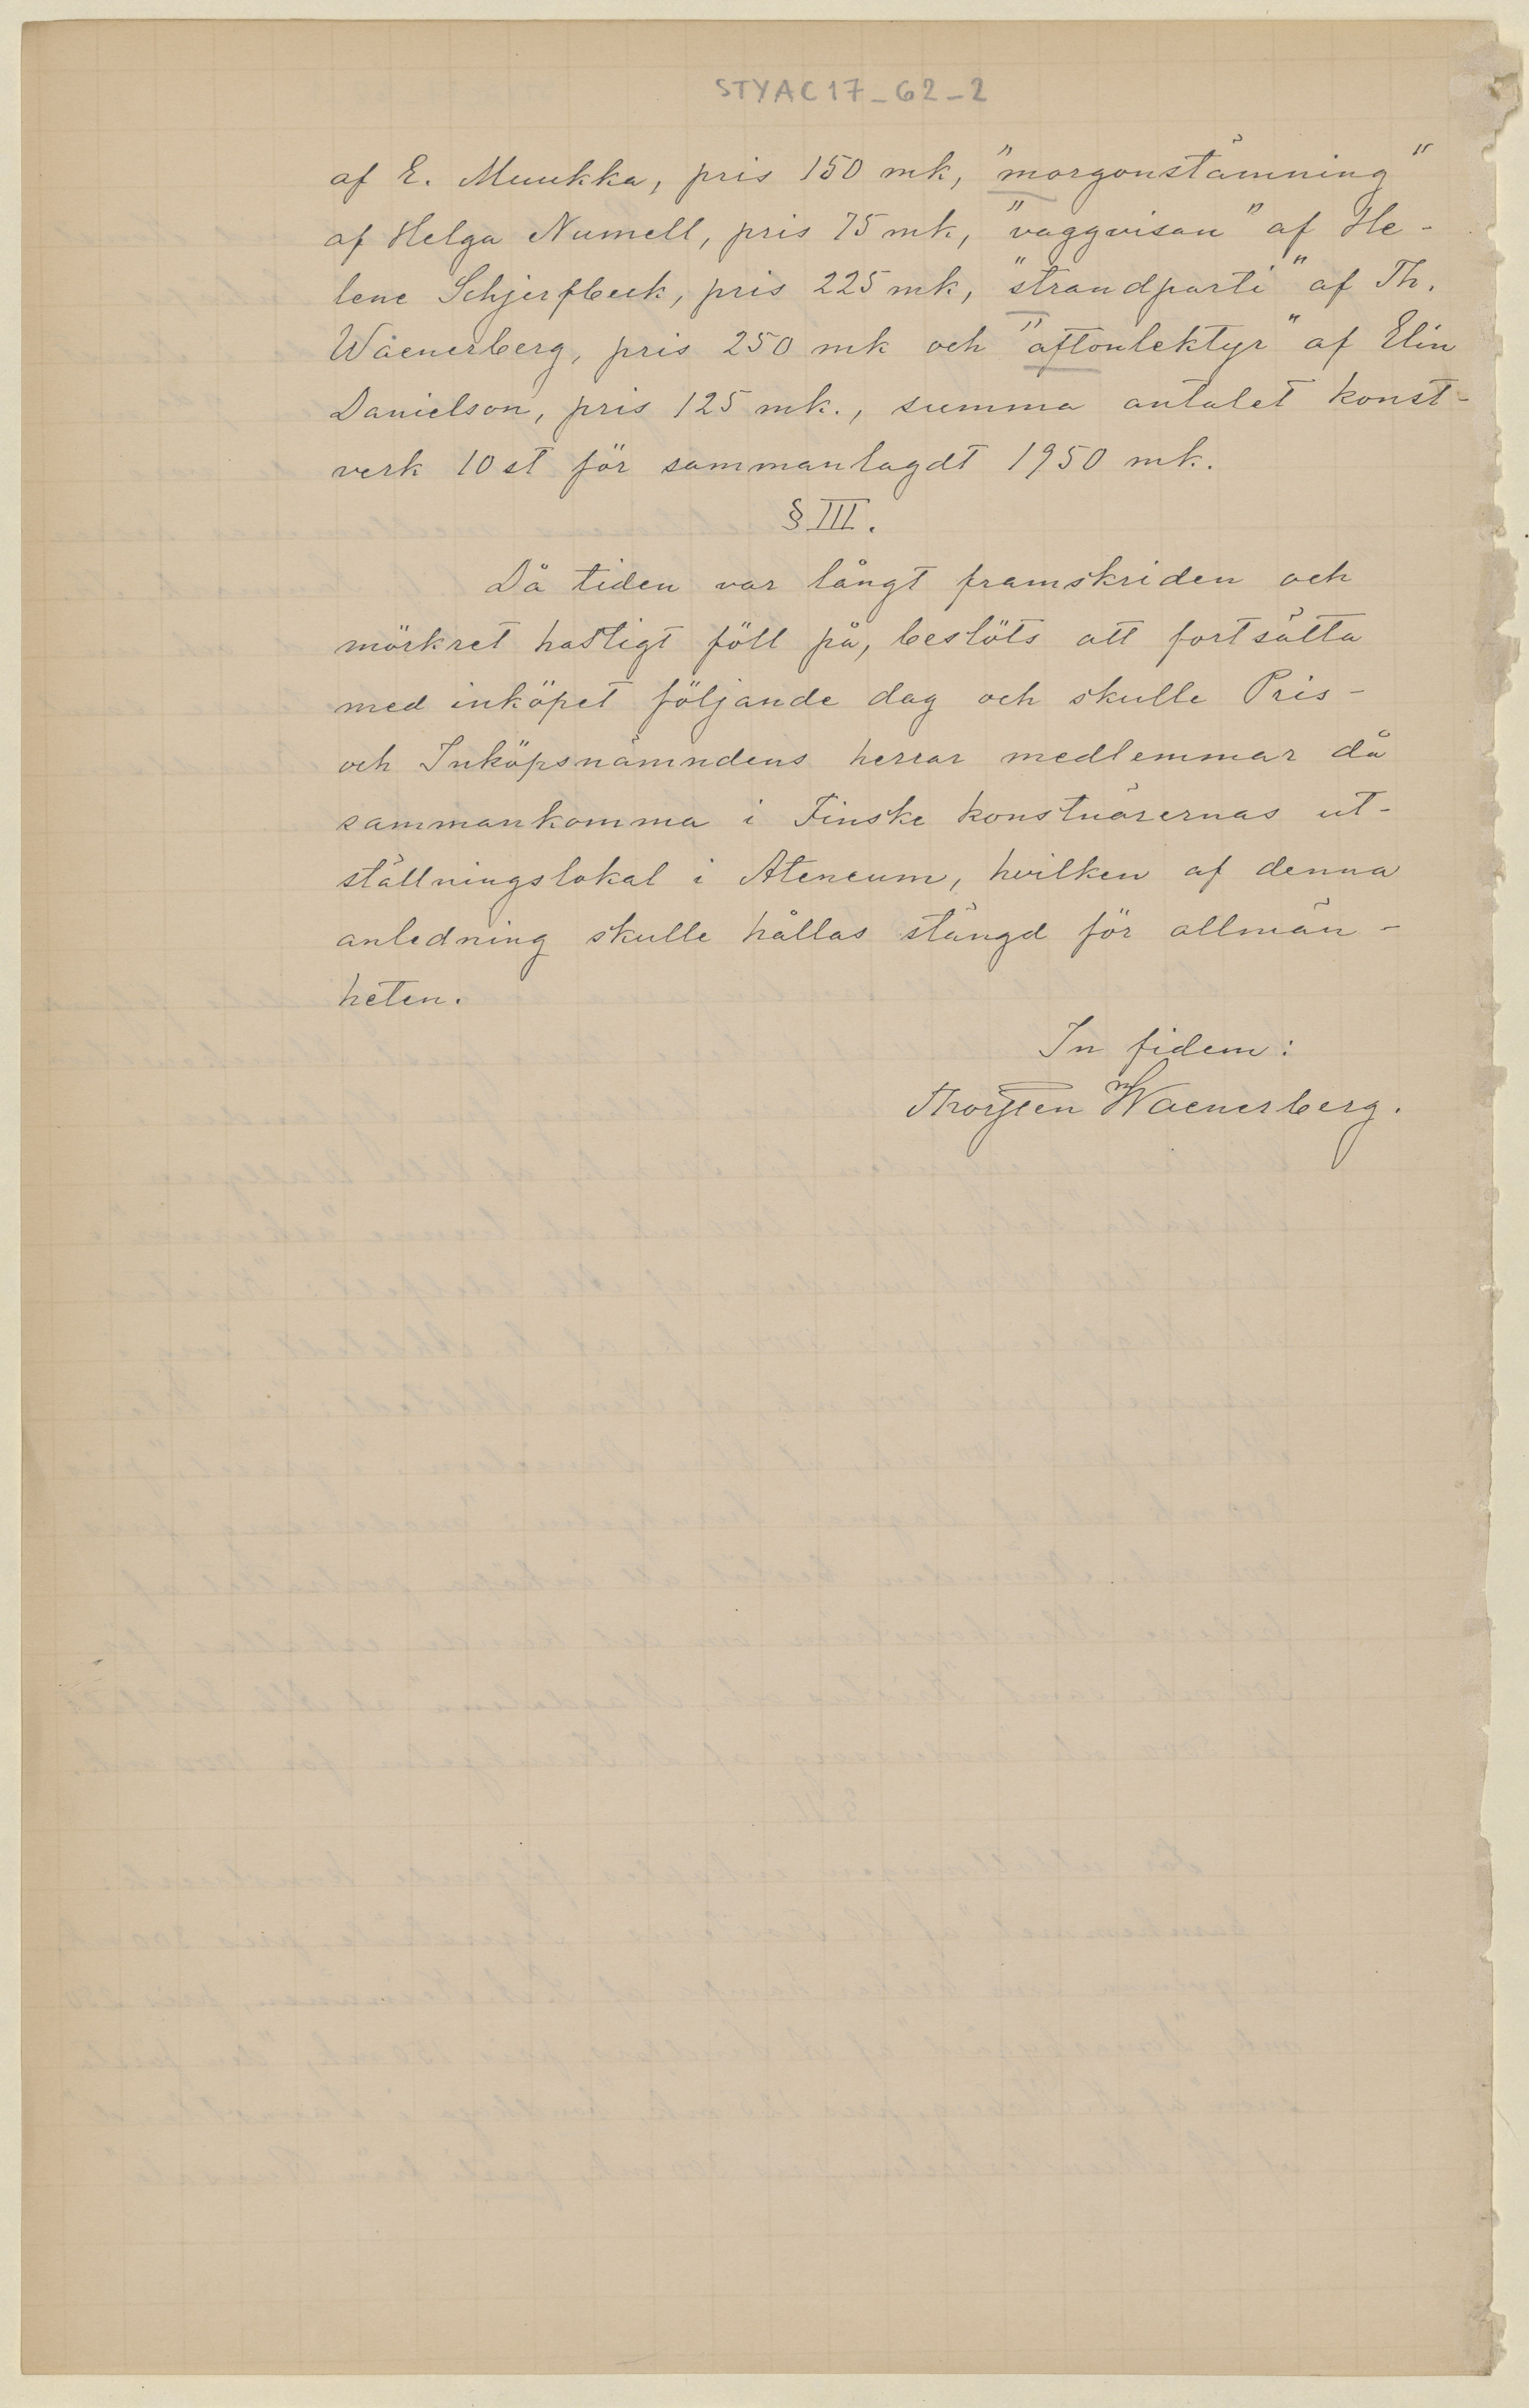 STYAC17_62_2
af E. Muukka, pris 150 mk, "morgonstämning"
af Helga Numell, pris 75 mk, "vaggvisan" af He-
lene Schjerfbeck, pris 225 mk, "strandparti" af Th.
Wäenerberg, pris 250 mk och "aftonlektyr" af Elin
Danielson, pris 125 mk., summa antalet konst-
verk 10 st för sammanlagdt 1950 mk.
§ III.
Då tiden var långt framskriden och
mörkret hastigt föll på, beslöts att fortsätta
med inköpet följande dag och skulle Pris-
och Inköpsnämndens herrar medlemmar då
sammankomma i Finske konstnärernas ut-
ställningslokal i Ateneum, hvilken af denna
anledning skulle hållas stängd för allmän-
heten.
In fidem:
Thorsten Waenerberg.